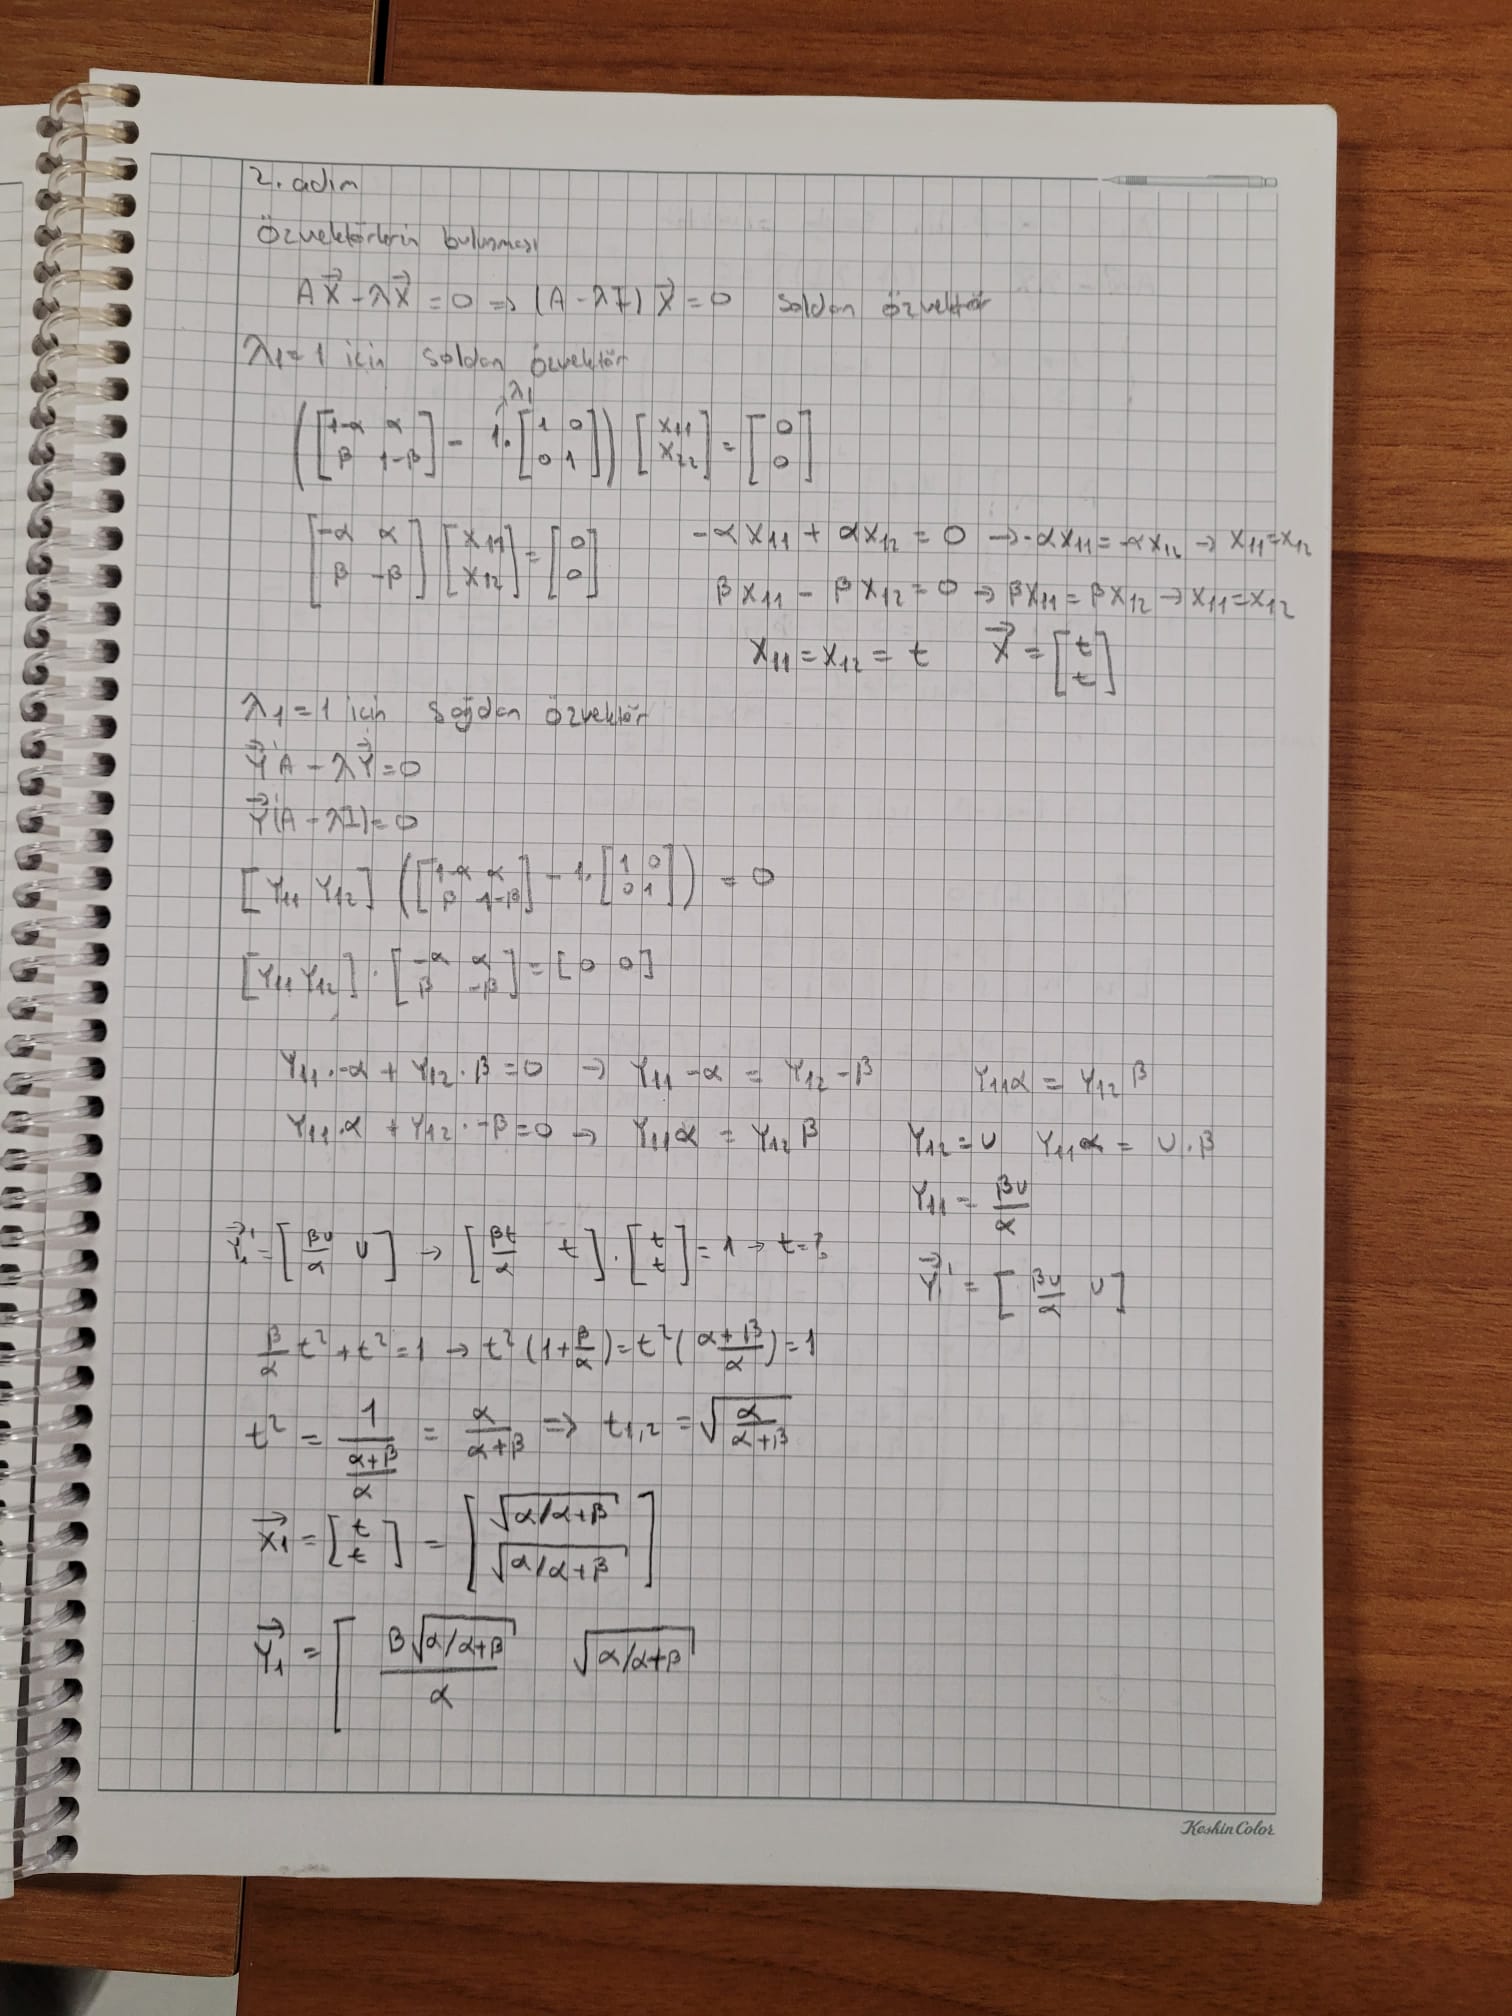 2. adım
Özvektörlerin bulunması
AX⃗ - λX⃗ = 0 ⇒ (A - λI) X⃗ = 0 soldan özvektör
λ1 = 1 icin soldan özvektör
λ1
([1-α α; β 1-β] - 1.[1 0; 0 1]) [x11; x22] = [0; 0]
[-α α; β -β] [x11; x12] = [0; 0] -αx11 + αx12 = 0 → -αx11 = -αx12 → x11 = x12
βx11 - βx12 = 0 → βx11 = βx12 → x11 = x12
x11 = x12 = t X⃗ = [t; t]
λ1 = 1 icin sağdan özvektör
Y⃗'A - λY⃗ = 0
Y⃗'(A - λI) = 0
[Y11 Y12] ([1-α α; β 1-β] - 1.[1 0; 0 1]) = 0
[Y11 Y12] . [-α α; β -β] = [0 0]
Y11 . -α + Y12 . β = 0 → Y11 -α = Y12 -β Y11α = Y12 β
Y11 . α + Y12 . -β = 0 → Y11α = Y12 β Y12 = U Y11α = U . β
Y11 = βU/α
Y⃗1' = [βU/α U] → [βt/α t] . [t; t] = 1 → t = ?
Y⃗' = [βU/α U]
β/α t² + t² = 1 → t² (1 + β/α) = t² (α+β/α) = 1
t² = 1/(α+β/α) = α/α+β ⇒ t1,2 = √(α/α+β)
X⃗1 = [t; t] = [√(α/α+β); √(α/α+β)]
Y⃗1 = [β√(α/α+β)/α √(α/α+β)
KeskinColor